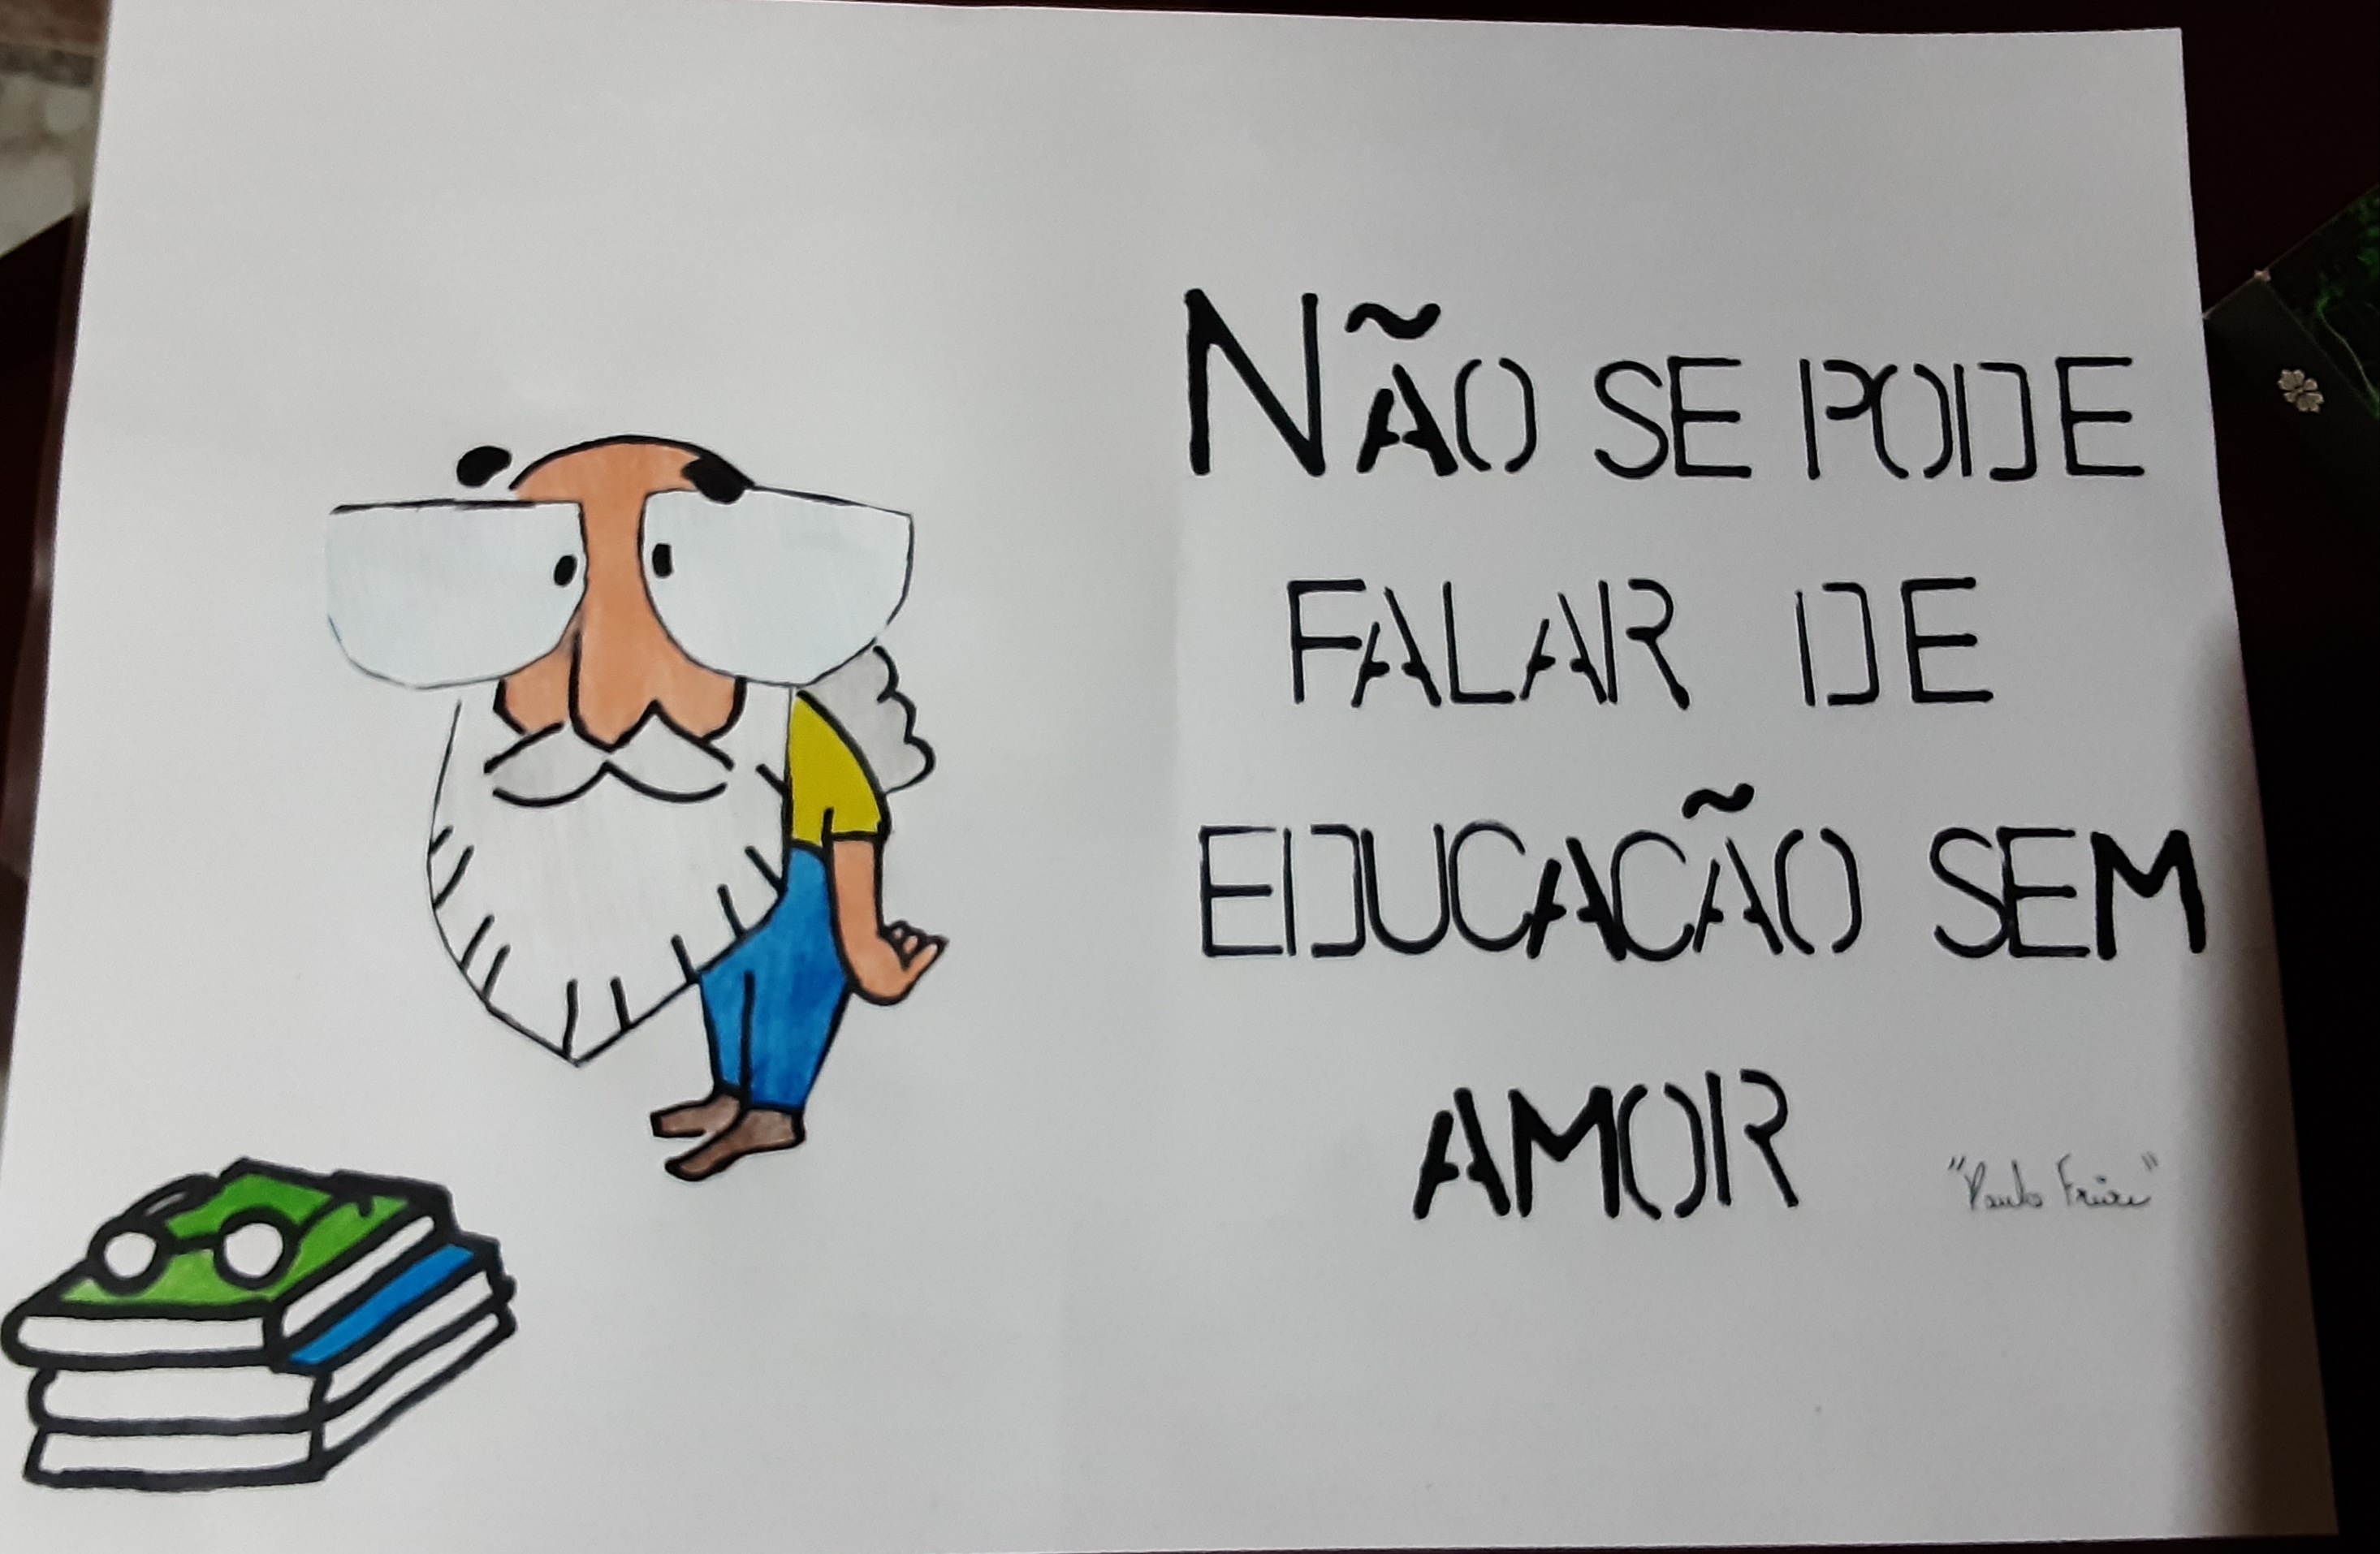 NÃO SE PODE
FALAR DE
EDUCACÃO SEM
AMOR
"Paulo Freire"